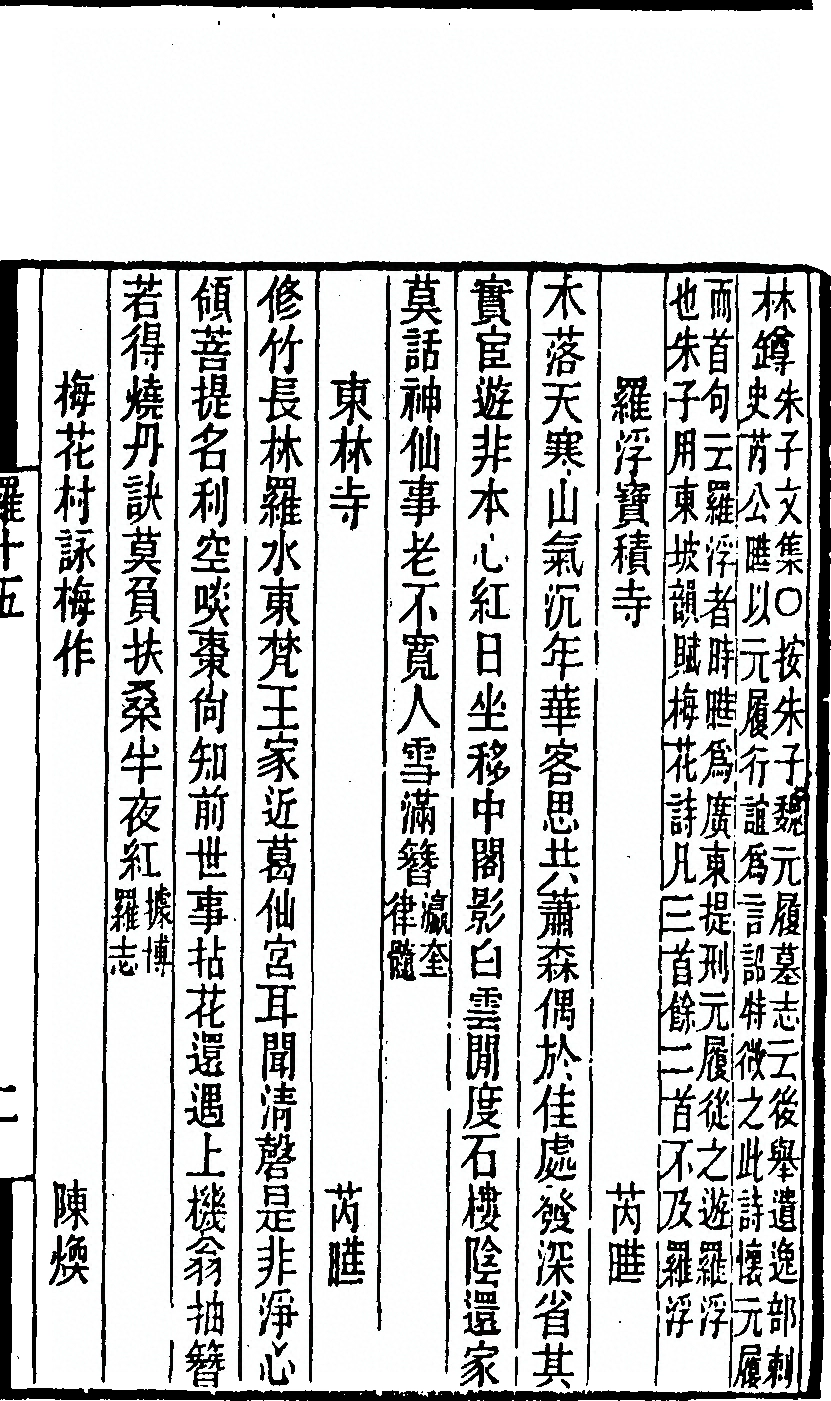 林罇
朱子文集〇按朱子魏元履墓志云後舉遺逸部刺
史芮公曄以元履行誼爲言詔特徵之此詩懷元履
而首句云羅浮者時曄爲廣東提刑元履從之遊羅浮
也朱子用東坡韻賦梅花詩凡三首餘二首不及羅浮
羅浮寶積寺 芮曄
木落天寒山氣沉年華客思共蕭森偶於佳處發深省其
實宦遊非本心紅日坐移中閣影白雲閒度石樓陰還家
莫話神仙事老不寬人雪滿簪瀛奎律髓
東林寺 芮曄
修竹長林羅水東梵王家近葛仙宮耳聞清磬是非淨心
領菩提名利空啖棗向知前世事拈花還遇上機翁抽簪
若得燒丹訣莫負扶桑半夜紅據博羅志
梅花村詠梅作 陳煥
羅十五 二